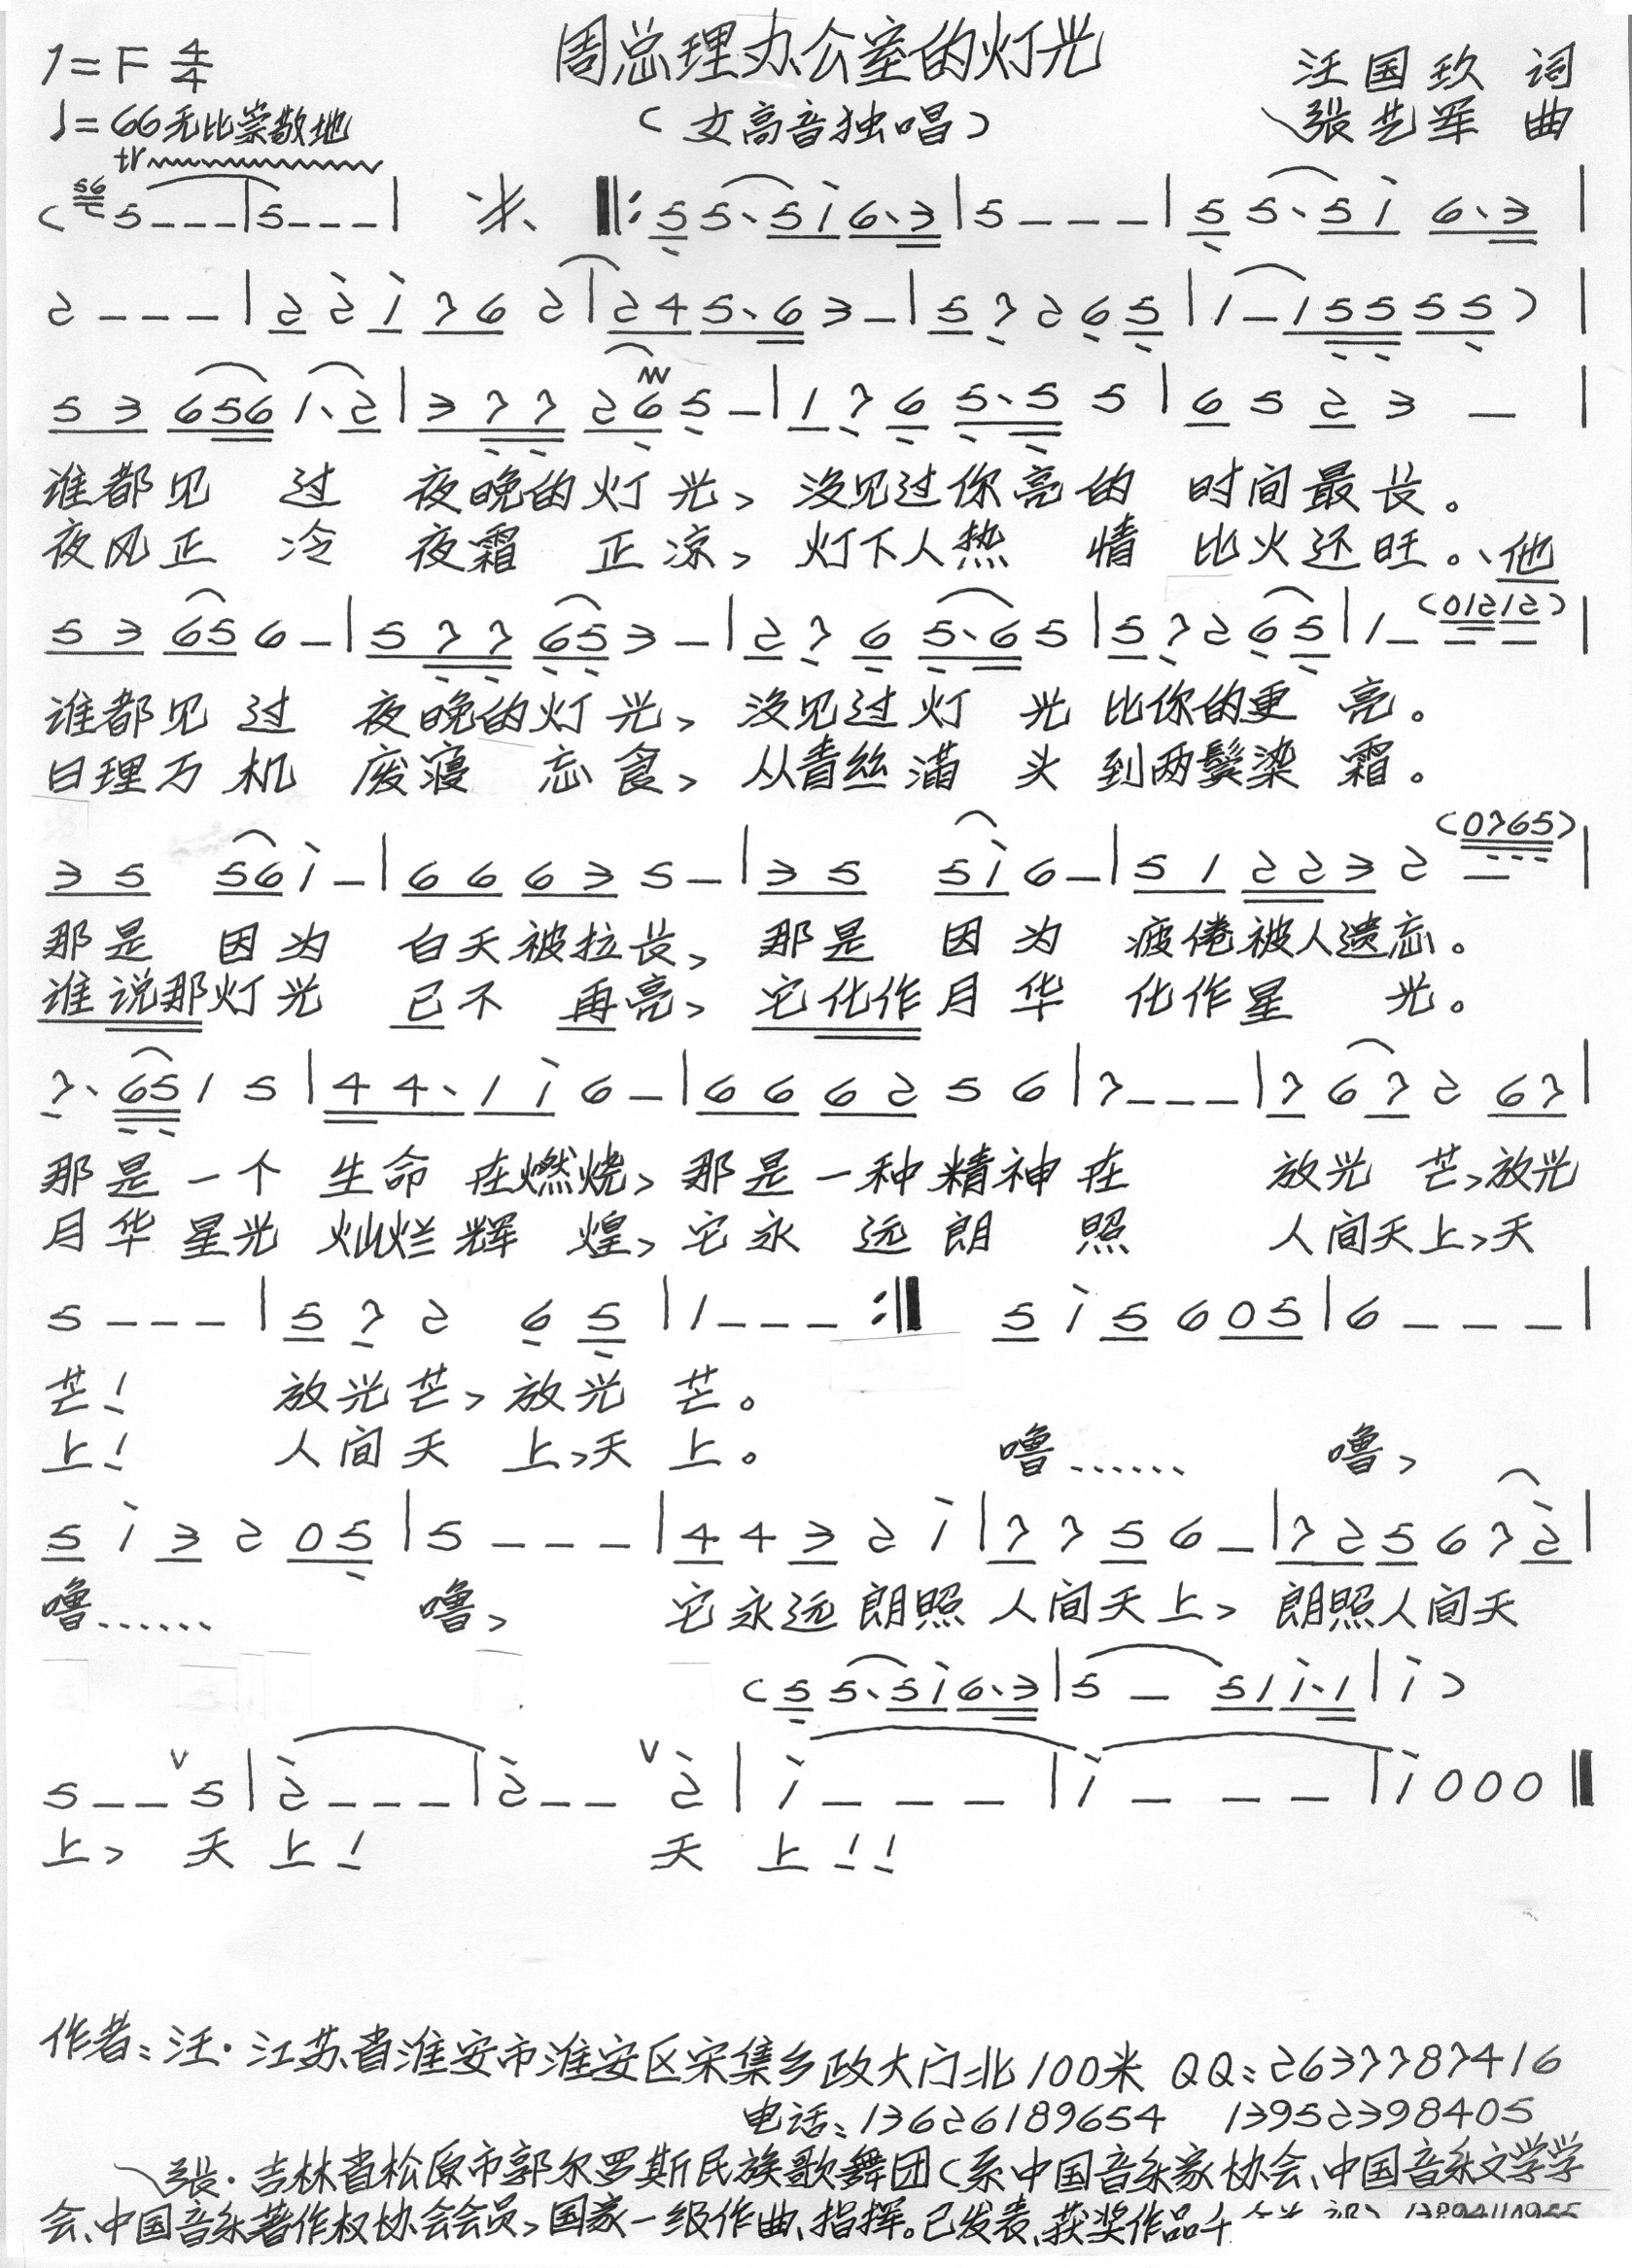 周总理办公室的灯光
1=F 4/4
汪国玖 词
♩=66无比崇敬地
(女高音独唱)
张艺军 曲
tr
(56 5---|5---| 米、 ‖:5 5·5i6·3|5---|5 5·5i 6·3|
2---|2 2 i 76 2|245·6 3-|5 7 2 6 5|1-155 55)|
5 3 656 1·2|3 7 7 26 5-|1 7 6 5·5 5|6 5 2 3 -|
谁都见 过 夜晚的灯 光、没见过你亮的 时间最长。
夜风正 冷 夜霜 正凉、灯下人热 情 比火还旺。、他
(01212)
5 3 65 6-|5 7 7 65 3-|2 7 6 5·6 5|5 7 2 6 5|1-|
谁都见 过 夜晚的灯 光、没见过灯 光 比你的更 亮。
日理万 机 废寝 忘食、从青丝满 头 到两鬓染 霜。
(0765)
3 5 56 i-|6 6 6 3 5-|3 5 5i 6-|5 1 2 2 3 2 -|
那是 因为 白天被拉长、那是 因为 疲倦被人遗忘。
谁说那灯光 已不 再亮、它化作月华 化作星 光。
7·65 1 5|4 4·1 i 6-|6 6 6 2 5 6|7---|7 6 7 2 67|
那是一个 生命 在燃烧、那是一种精神在 放光 芒、放光
月华星光 灿烂辉 煌、它永 远朗 照 人间天上、天
5---|5 7 2 6 5|1---:‖ 5 i 5 6 05|6---|
芒! 放光芒、放光 芒。
上! 人间天 上、天 上。 噜…… 噜、
5 i 3 2 05|5---|4 4 3 2 i|7 7 5 6-|7 2 5 6 7 2|
噜…… 噜、 它永远朗照 人间天上、 朗照人间天
(5 5·5i6·3|5 - 51i·1|i)
5--∨5|2---|2--∨2|i---|i---|i000‖
上、 天上! 天 上!!
作者:汪·江苏省淮安市淮安区宋集乡政大门北100米 QQ:2637787416
电话:13626189654 13952398405
张·吉林省松原市郭尔罗斯民族歌舞团(系中国音乐家协会、中国音乐文学学
会、中国音乐著作权协会会员、国家一级作曲、指挥。已发表、获奖作品千